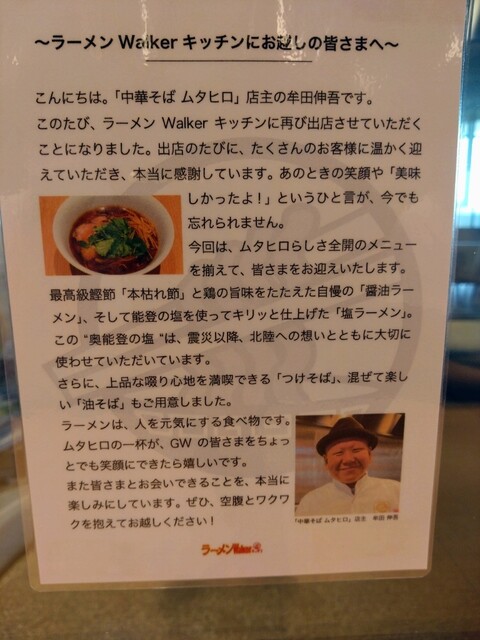 ～ラーメン Walker キッチンにお越しの皆さまへ～
こんにちは。「中華そば ムタヒロ」店主の牟田伸吾です。
このたび、ラーメン Walker キッチンに再び出店させていただく
ことになりました。出店のたびに、たくさんのお客様に温かく迎
えていただき、本当に感謝しています。あのときの笑顔や「美味
しかったよ！」というひと言が、今でも
忘れられません。
今回は、ムタヒロらしさ全開のメニュー
を揃えて、皆さまをお迎えいたします。
最高級鰹節「本枯れ節」と鶏の旨味をたたえた自慢の「醤油ラー
メン」、そして能登の塩を使ってキリッと仕上げた「塩ラーメン」。
この “奥能登の塩 “は、震災以降、北陸への想いとともに大切に
使わせていただいています。
さらに、上品な啜り心地を満喫できる「つけそば」、混ぜて楽し
い「油そば」もご用意しました。
ラーメンは、人を元気にする食べ物です。
ムタヒロの一杯が、GW の皆さまをちょっ
とでも笑顔にできたら嬉しいです。
また皆さまとお会いできることを、本当に
楽しみにしています。ぜひ、空腹とワクワ
クを抱えてお越しください！
「中華そば ムタヒロ」店主　牟田 伸吾
ラーメンWalker